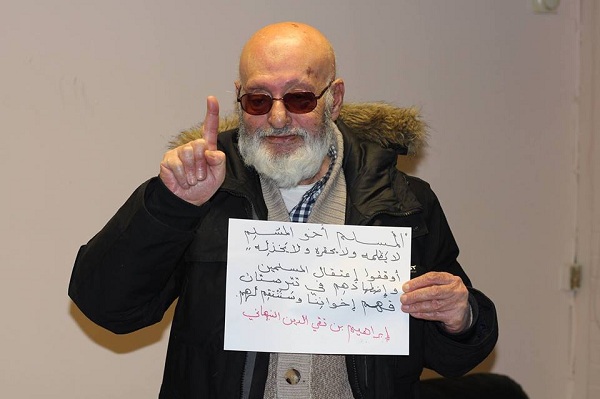 "المسلم أخو المسلم
لا يظلمه ولا يحقره ولا يخذله"
أوقفوا إعتقال المسلمين
وإضطهادهم في تترستان
فهم إخواننا وسننتقم لهم.
إبراهيم بن تقي الدين النبهاني